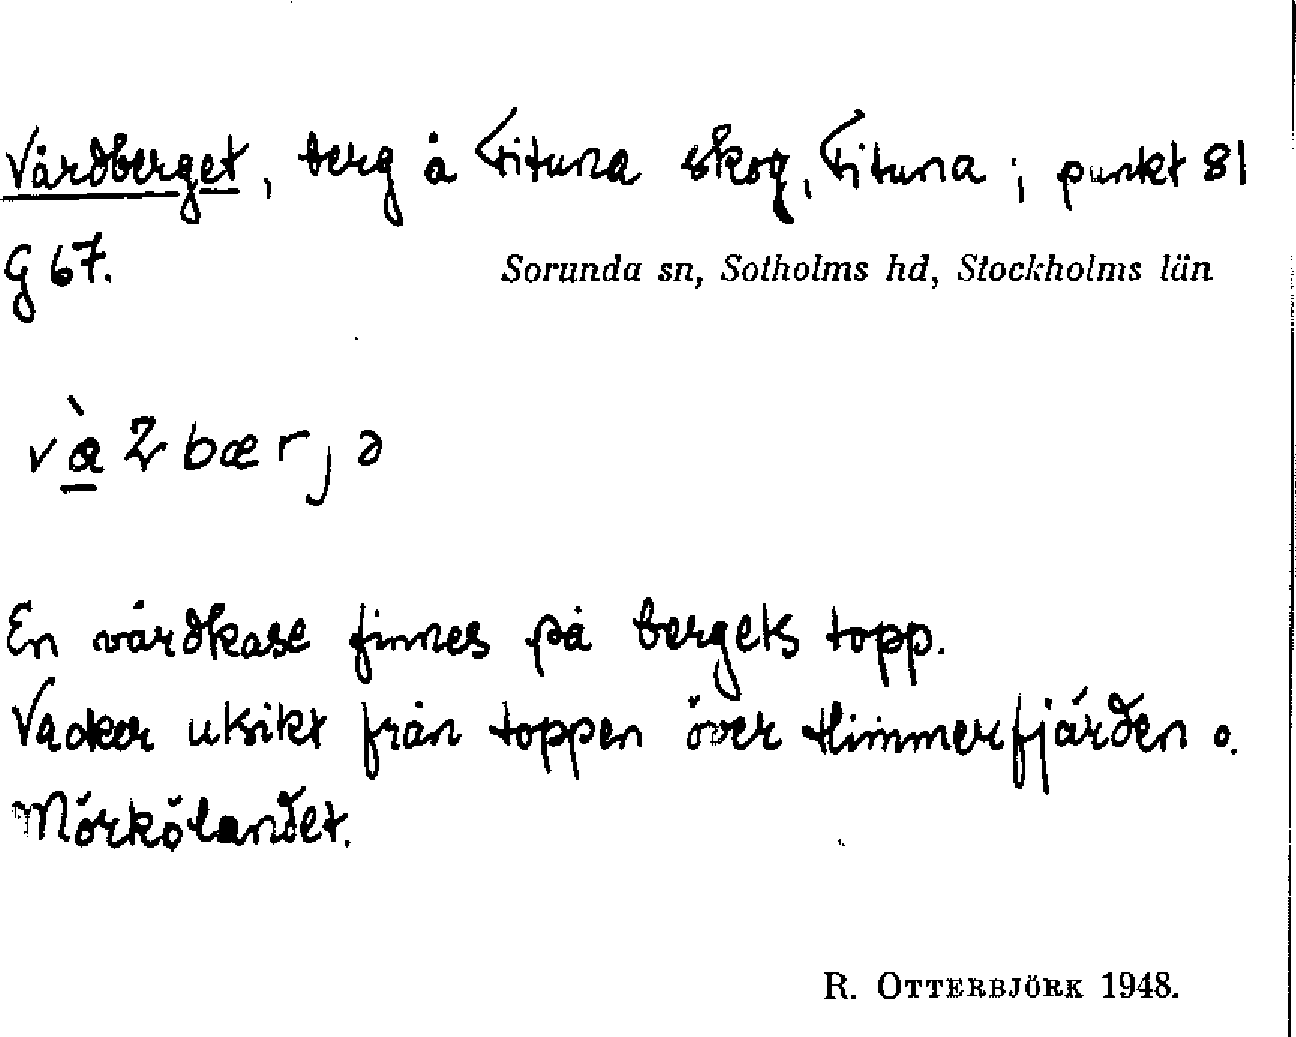 Vårdberget, berg å Fituna skog, Fituna; punkt 81
G 67.
Sorunda sn, Sotholms hd, Stockholms län
En vårdkase finnes på bergets topp.
Vacker utsikt från toppen över Himmerfjärden o.
Mörkölandet.
R. OTTERBJÖRK 1948.